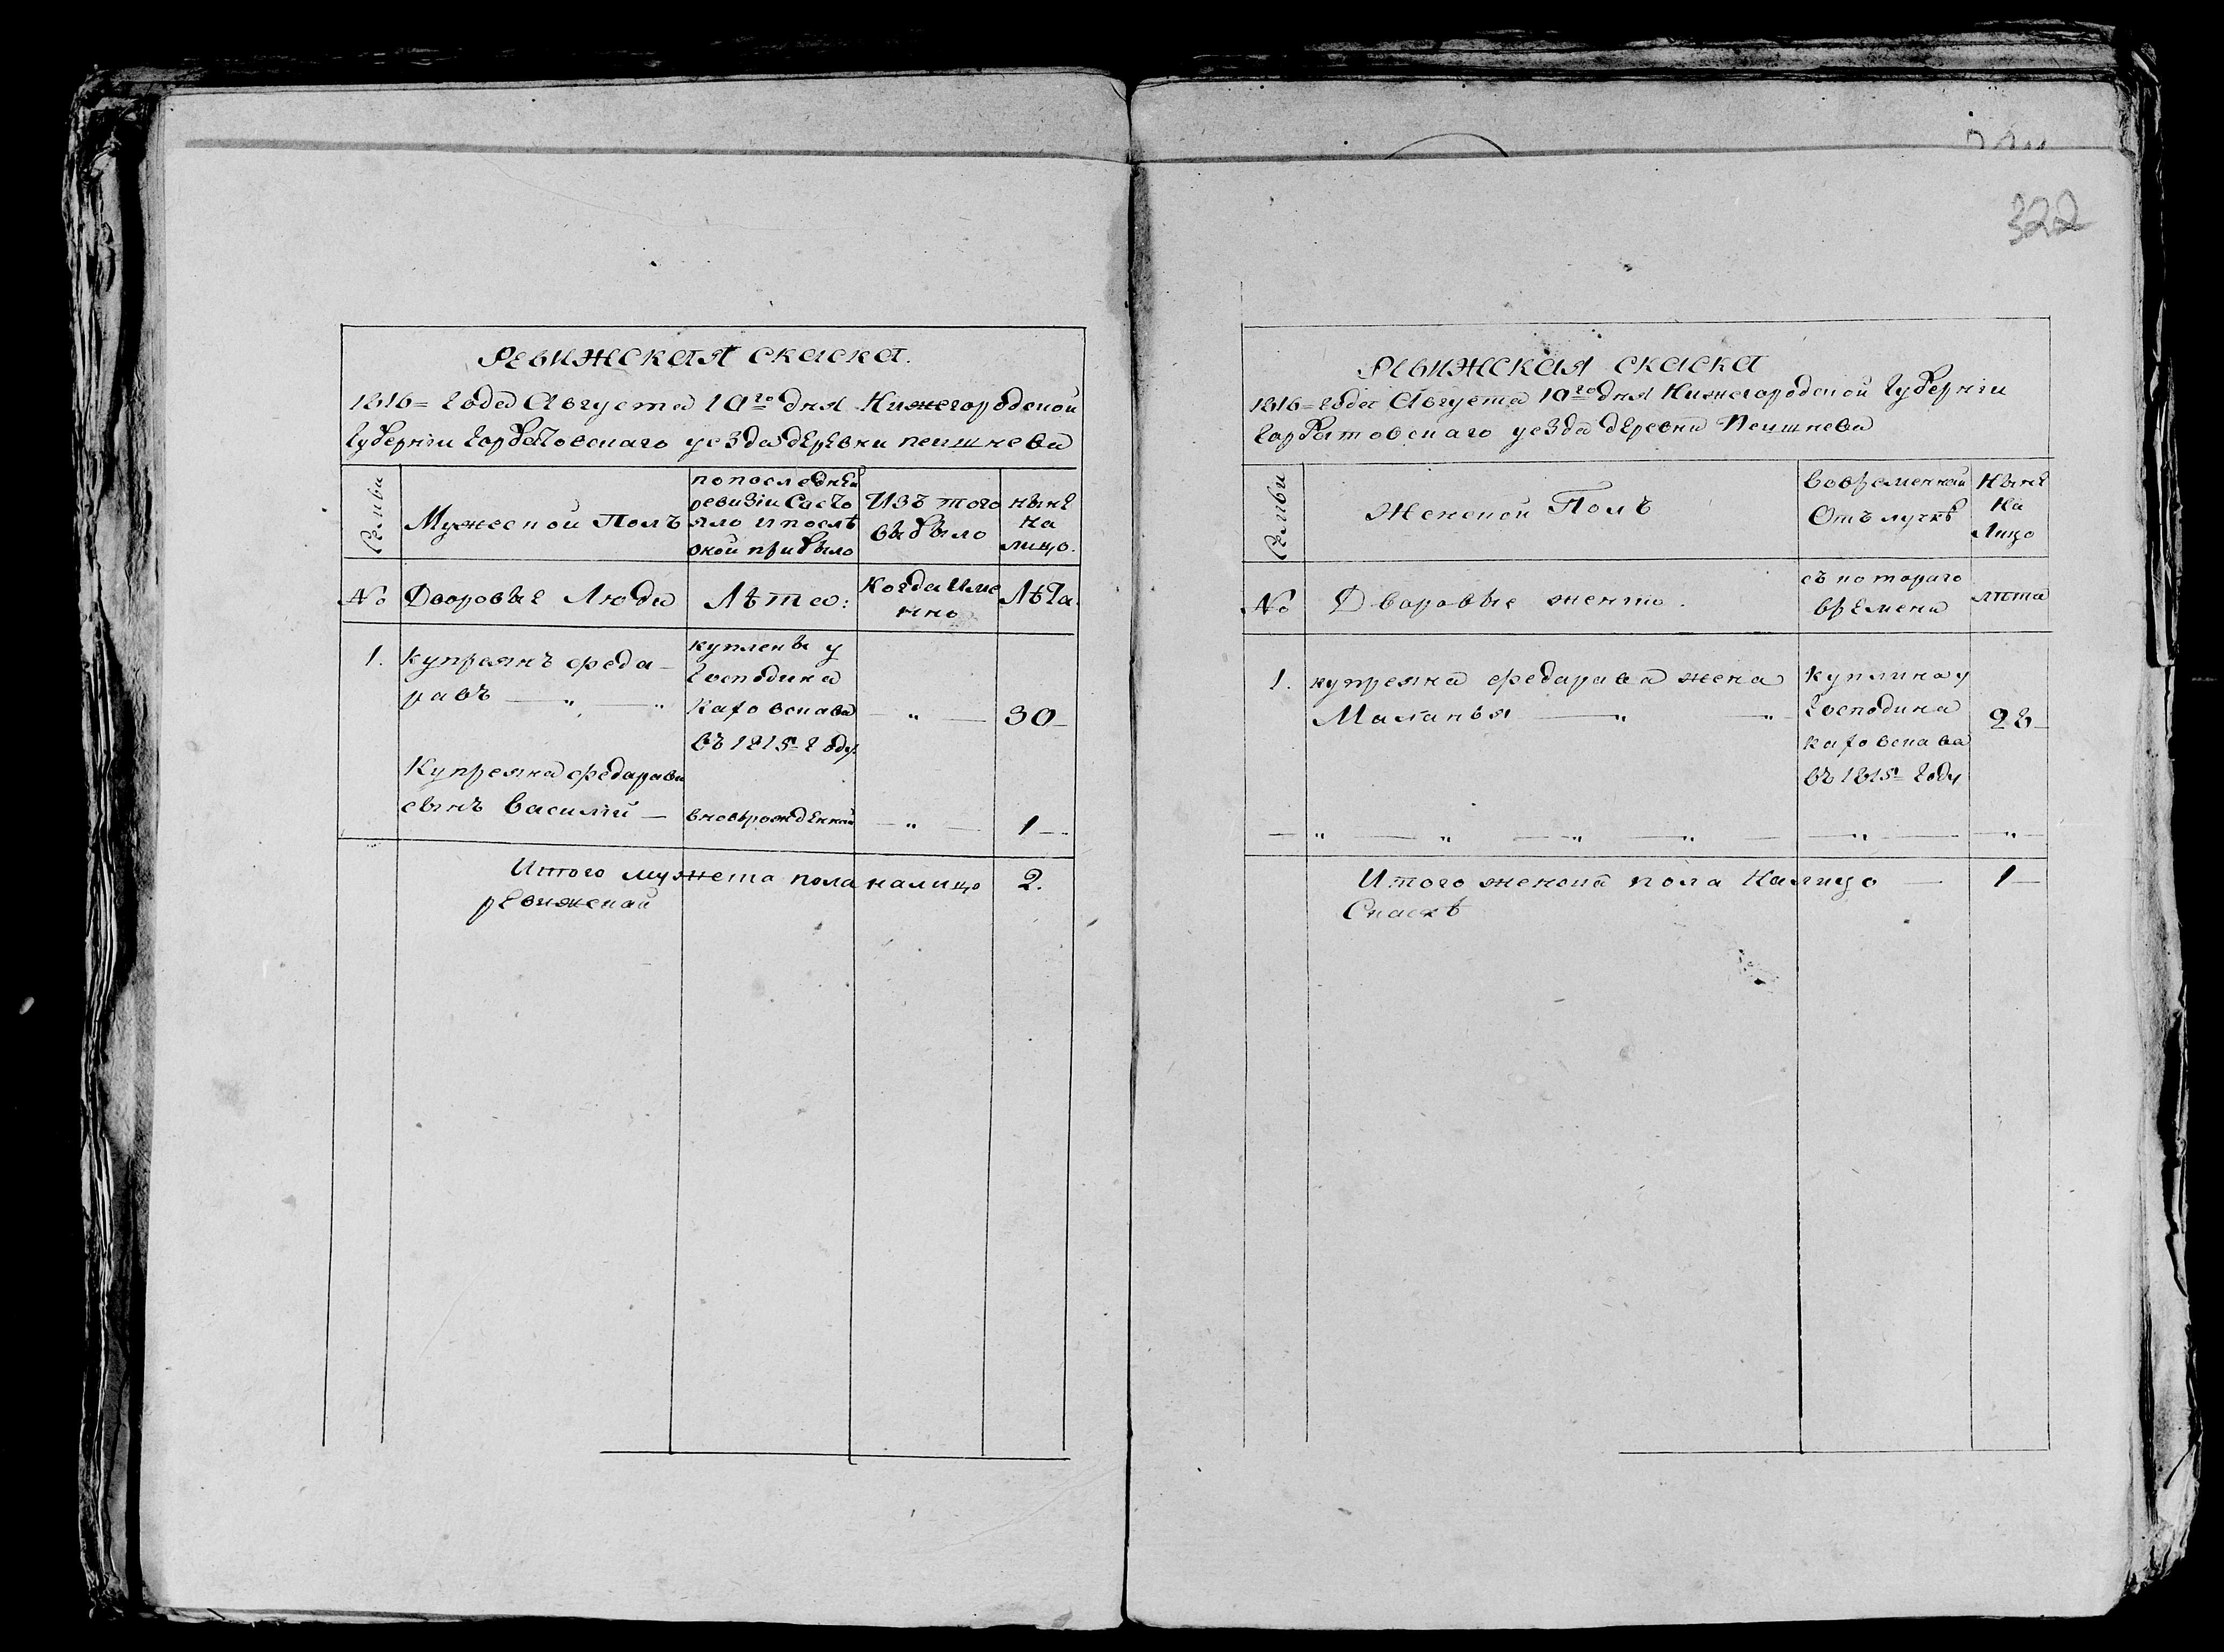 322
Ревижская скаска.
1816= года Августа 10го дня Нижегородской
Губернiи Горбатовскаго уезда деревни пеишнева
Семьи
Мужеской Полъ
попоследней
ревизiи Састо
яло ипослѣ
оной прибыло
Изъ того
выбыло
нынѣ
на
лицо.
№
Дворовые Люди
Лѣта:
Когда Име
нно
Лѣта.
1.
купреянъ феда-
равъ — „ — „
куплены у
Господина
въ 1815= году.
— „ —
30—
Купреяна федарава
сынъ Василiй —
вновьрожденнай
— „ —
1—
Итого мужеска пола налицо
2.
ревижскай
Ревижская скаска
1816= года Августа 10го дня Нижегородской Губернiи
Горбатовскаго уезда деревни Пеишнева
Семьи
Женской Полъ
вовременнай
Отълучкѣ
Нынѣ
На
Лицо
№
Дворовые женки.
съ котораго
времени
лѣта
1.
купреяна федарава жена
Маланья — „ — „
Куплина у
Господина
въ 1815= году
28—
— „ — „ — „ — „ — — „ — „
Итого женска пола Налицо —
1—
Скаскѣ